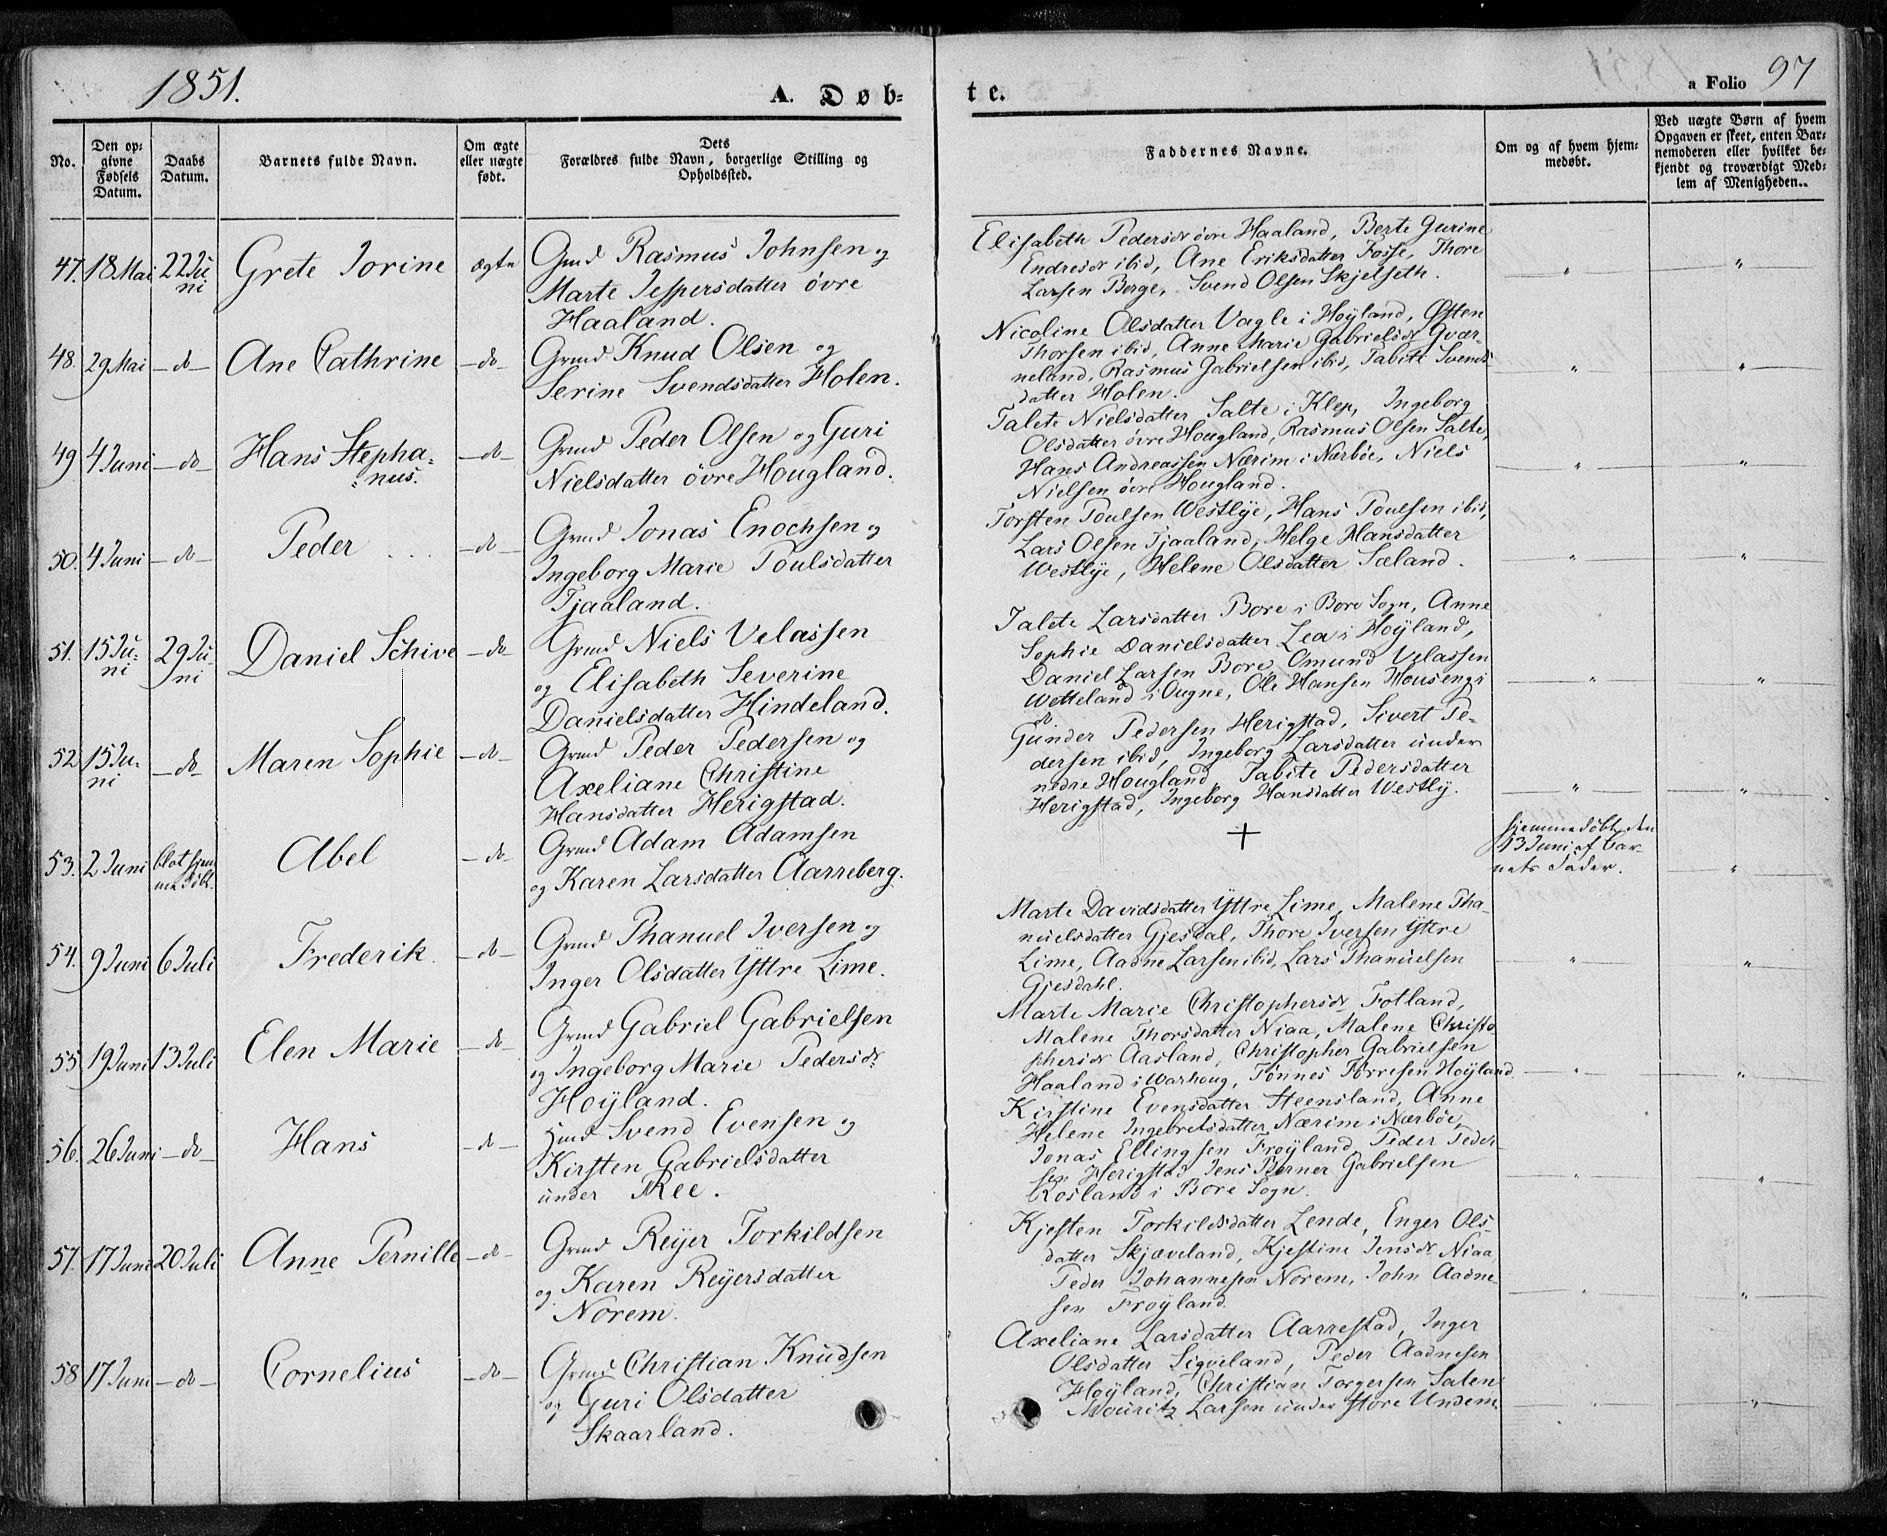 1851. A. Døb- te. a Folio 97
No.
Den op-
givne
Fødsels
Datum.
Daabs
Datum.
Barnets fulde Navn.
Om ægte
eller uægte
født.
Dets
Forældres fulde Navn, borgerlige Stilling og
Opholdssted.
Faddernes Navne.
Om og af hvem hjem-
medøbt.
Ved uægte Børn af hvem
Opgaven er skeet, enten Bar-
nemoderen eller hvilket be-
kjendt og troværdigt Med-
lem af Menigheden.
47. 18 Mai 22 Ju
ni
Grete Jorine ægte
Gmd Rasmus Johnsen og
Marte Jespersdatter øvre
Haaland.
Elisabeth Pedersdr øvre Haaland, Berte Gurine
Endresdr ibid, Ane Eriksdatter Fosse, Thore
Larsen Berge, Svend Olsen Skjelseth.
" "
48. 29 Mai -do- Ane Cathrine -do-
Grmd Knud Olsen og
Serine Svendsdatter Holen.
Nicoline Olsdatter Vagle i Høyland, Østen
Thorsen ibid, Anne Marie Gabrielsdr Qvær-
neland, Rasmus Gabrielsen ibid, Tabite Svends
datter Holen.
" "
49 4 Juni -do- Hans Stepha=
=nus. -do-
Grmd Peder Olsen og Guri
Nielsdatter øvre Hougland.
Talete Nielsdatter Salte i Klep, Ingeborg
Olsdatter øvre Hougland, Rasmus Olsen Salte,
Hans Andreassen Nærim i Nærbøe, Niels
Nielsen øvre Hougland.
" "
50. 4 Juni -do- Peder -do-
Grmd Jonas Enochsen og
Ingeborg Marie Poulsdatter
Tjaaland.
Torsten Poulsen Westlye, Hans Poulsen ibid,
Lars Olsen Tjaaland, Helge Hansdatter
Westlye, Helene Olsdatter Sæland.
" "
51. 15 Ju-
ni 29 Ju
ni Daniel Schive -do-
Grmd Niels Velassen
og Elisabeth Severine
Danielsdatter Hindeland.
Talete Larsdatter Bore i Bore Sogn, Anne
Sophie Danielsdatter Lea i Høyland,
Daniel Larsen Bore, Omund Velassen
Wetteland i Ougne, Ole Hansen Houseng i
do
" "
52 15 Ju-
ni -do- Maren Sophie -do-
Grmd Peder Pedersen og
Axeliane Christine
Hansdatter Herigstad.
Gunder Pedersen Herigstad, Sivert Pe-
dersen ibid, Ingeborg Larsdatter under
nedre Hougland, Tabite Pedersdatter
Herigstad, Ingeborg Hansdatter Westly.
" "
53. 2 Juni blot hjem
medøbt. Abel -do-
Grmd Adam Adamsen
og Karen Larsdatter Aarreberg.
+
hjemmedøbt den
13 Juni af Bar-
nets Fader.
"
54. 9 Juni 6 Juli Frederik -do-
Grmd Phanuel Iversen og
Inger Olsdatter Yttre Lime.
Marte Davidsdatter Yttre Lime, Malene Pha-
nuelsdatter Gjesdal, Thore Iversen Yttre
Lime, Aadne Larsen ibid, Lars Phanuelsen
Gjesdahl.
" "
55 19 Juni 13 Juli Elen Marie -do-
Grmd Gabriel Gabrielsen
og Ingeborg Marie Pedersdr
Høyland.
Marte Marie Christophersdr Fotland,
Malene Thorsdatter Niaa, Malene Christo
phersdr Aasland, Christopher Gabrielsen
Haaland i Warhoug, Tønnes Torresen Høyland
" "
56. 26 Juni -do- Hans -do-
Hmd Svend Evensen og
Kirsten Gabrielsdatter
under Ree.
Kirstine Evensdatter Steensland, Anne
Helene Ingebretsdatter Nærim i Nærbøe,
Jonas Ellingsen Frøyland, Peder Peder
sen Herigstad, Jens Berner Gabrielsen
Rosland i Bore Sogn.
" "
57. 17 Juni 20 Juli Anne Pernille -do-
Grmd Reyer Torkildsen
og Karen Reyersdatter
Norem.
Kjesten Torkildsdatter Lende, Enger Ols-
datter Skjæveland, Kjestine Jensdr Niaa,
Peder Johannesen Norem, John Aadne-
sen Frøyland.
" "
58 17 Juni -do- Cornelius -do-
Grmd Christian Knudsen
og Guri Olsdatter
Skaarland.
Axeliane Larsdatter Aarrestad, Inger
Olsdatter Sigveland, Peder Aadnesen
Høyland, Christian Torgersen Salen
Mouritz Larsen under store Undem.
" "